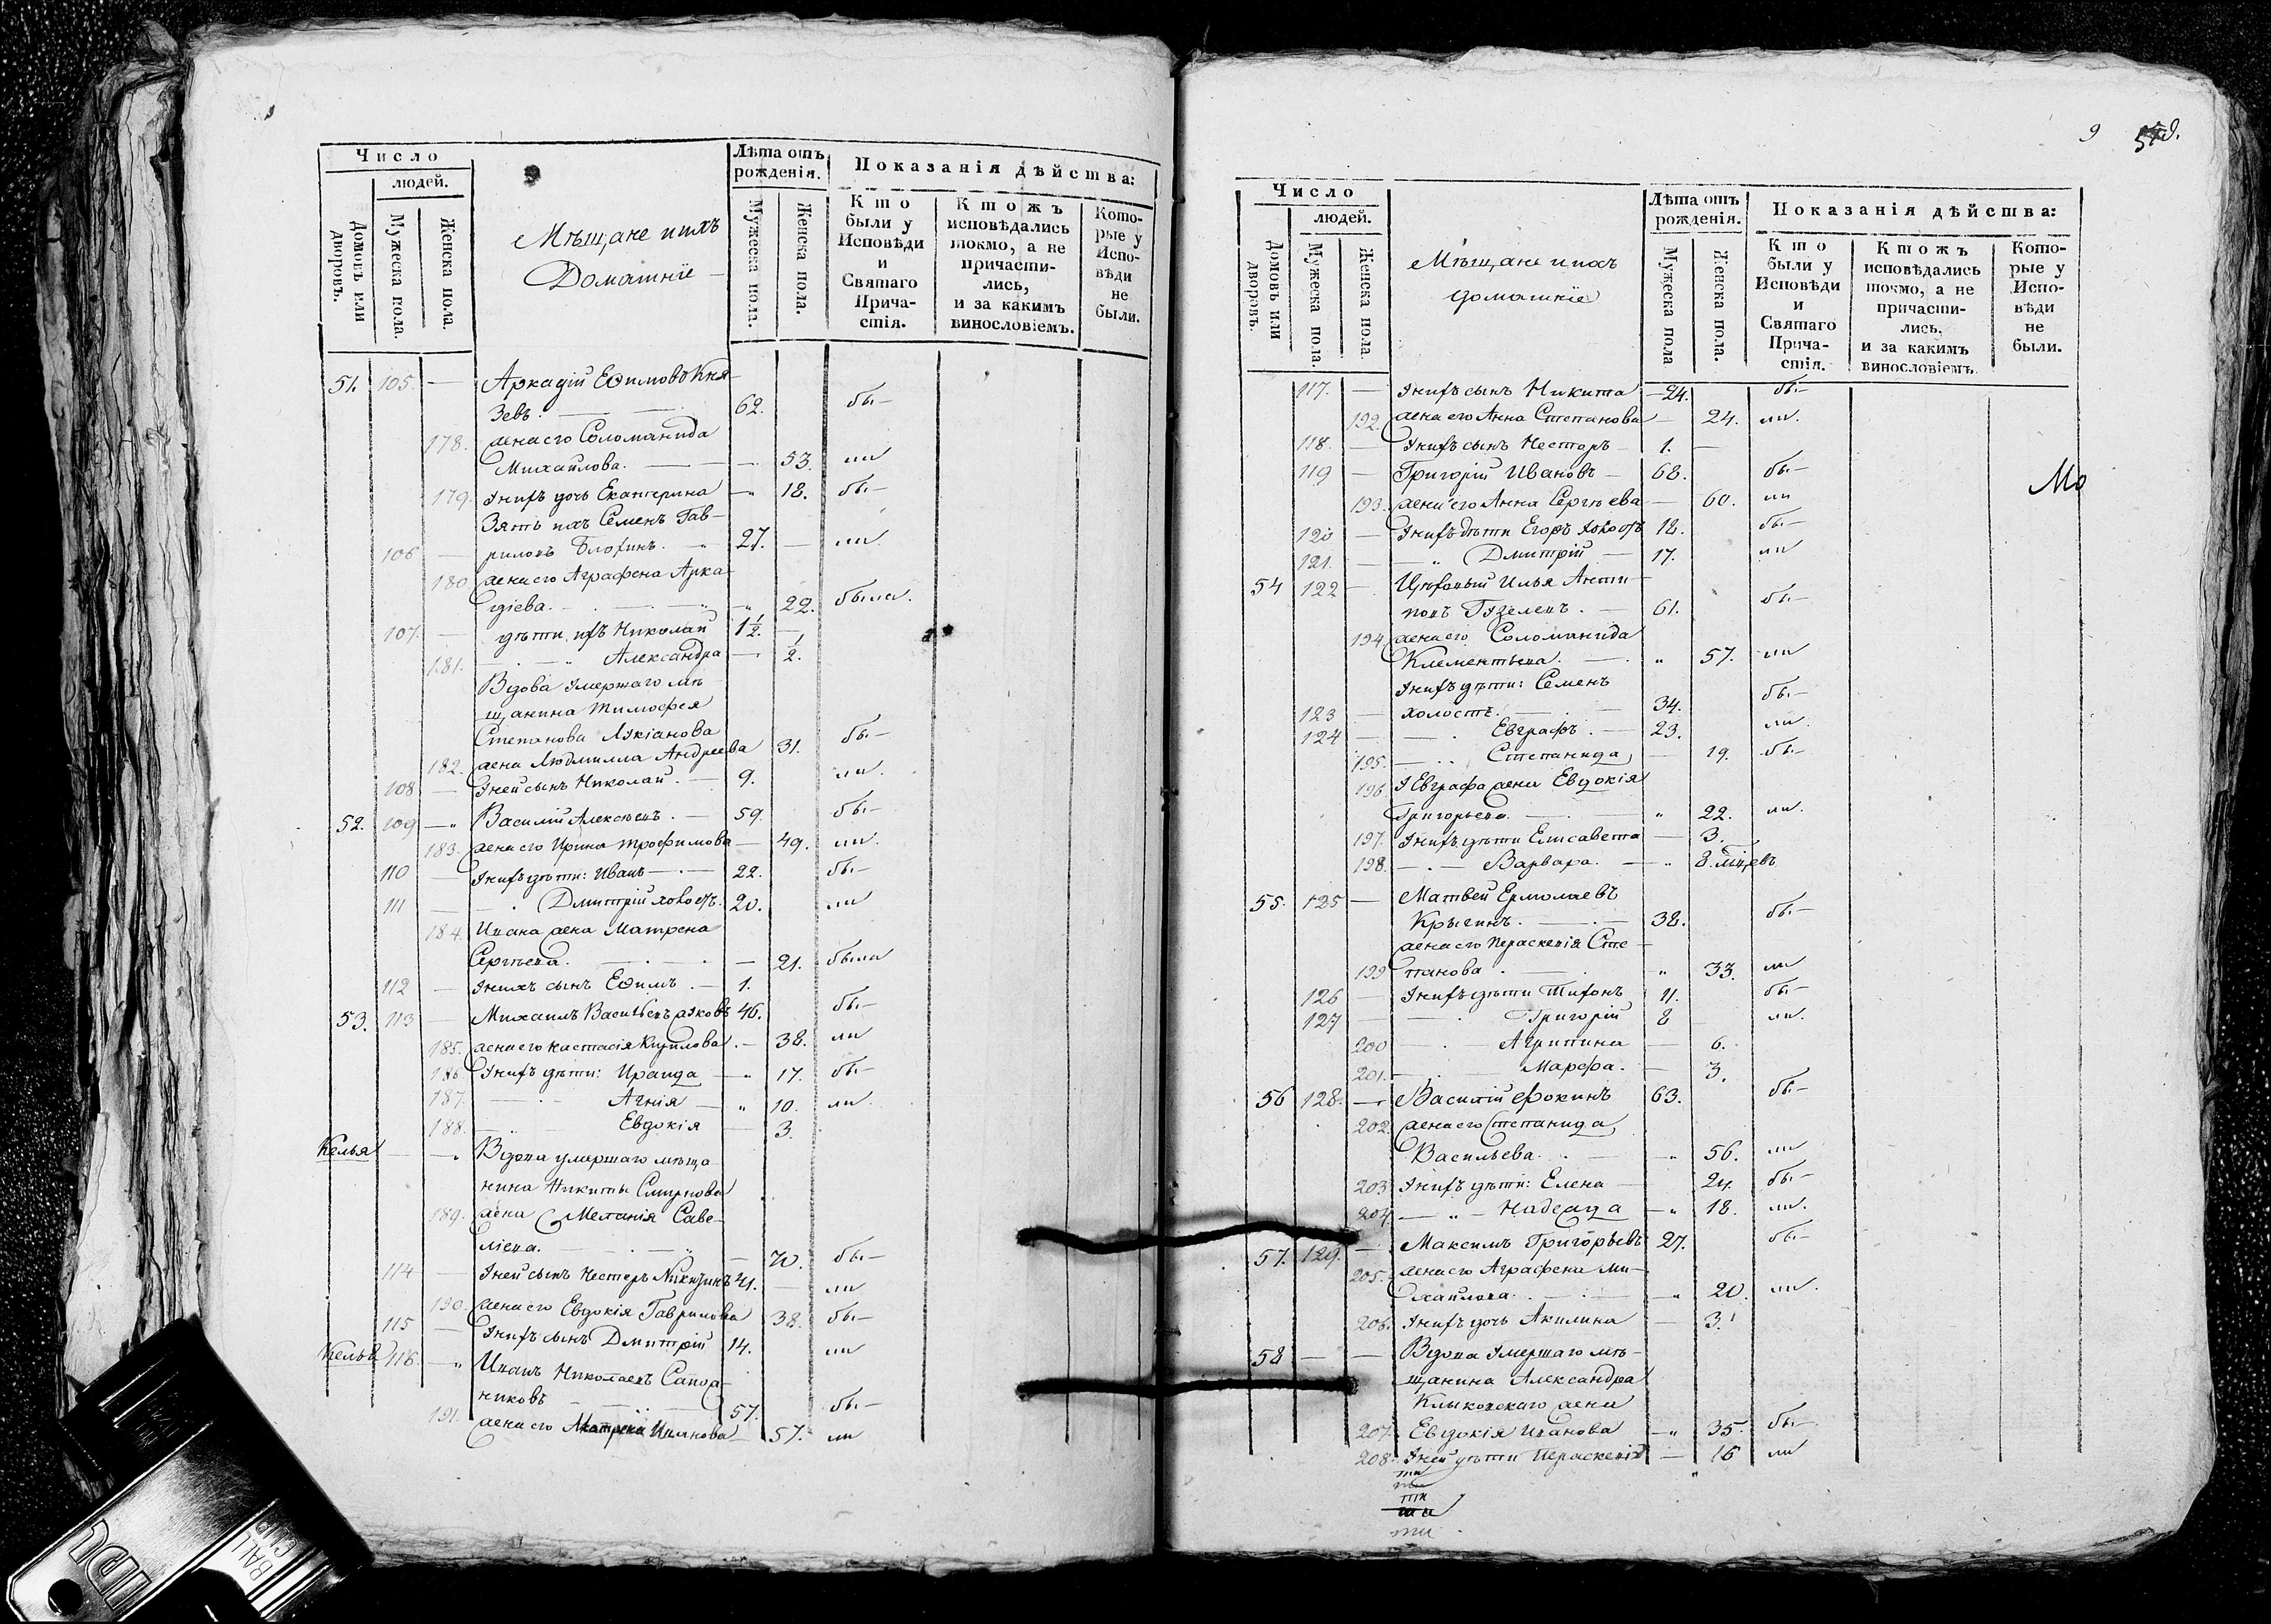 Число
людей.
Домовъ или дворовъ.
Мужеска пола.
Женска пола.
Мѣщане и ихъ
Домашніе
Лѣта отъ рожденія.
Мужеска пола.
Женска пола.
Показанія дѣйства:
Кто были у Исповѣди и Святаго Причастія.
Ктожъ исповѣдались токмо, а не причастились, и за какимъ винословіемъ.
Которые у Исповѣди не были.
51. 105. — Аркадій Ефимовъ Кня-
зевъ. — 62. бы-
178. жена его Соломанида
Михайлова. — 53. ли
179. У нихъ дочь Екатерина — 18. бы-
Зять ихъ Семенъ Гав-
106 — риловъ — 27. — ли
180 жена его Аграфена Арка-
діева. — 22. были.
107. — дѣти ихъ Николай 1½. —
181. — Александра — ½.
Вдова умершаго мѣ-
щанина Тимофея
Степанова Лукіанова
182. жена Людмилла Андреева 31. бы-
108 — У ней сынъ Николай. — 9. ли.
52. 109 — Василій Алексѣевъ. — 59. бы-
183. жена его Ирина Трофимова — 49. ли.
110 — У нихъ дѣти: Иванъ — 22. бы-
111 — Дмитрій холостъ. 20. ли
184. Ивана жена Матрена
Сергѣева. — 21. были
112 — У нихъ сынъ Ефимъ. — 1.
53. 113 — Михаилъ Васильевъ 46. бы-
185. жена его Настасія Кирилова. — 38. ли
186 У нихъ дѣти: Ираида — 17. бы-
187. — Агнія — 10. ли.
188. — Евдокія — 3.
Келья — Вдова умершаго мѣща-
нина Никиты Смирнова
189. жена Меланія Саве-
ліева. — 70. бы-
114 — У ней сынъ Нестеръ Никитинъ 41. — ли
190. жена его Евдокія Гаврилова 38. бы-
115 — У нихъ сынъ Дмитрій 14. ли
Келья 116. — Иванъ Николаевъ Сапож-
никовъ — 57. бы-
191. жена его Матрена Иванова — 57. ли
9
Число
людей.
Домовъ или дворовъ.
Мужеска пола.
Женска пола.
Мѣщане и ихъ
домашніе
Лѣта отъ рожденія.
Мужеска пола
Женска пола.
Показанія дѣйства:
Кто были у Исповѣди и Святаго Причастія.
Ктожъ исповѣдались токмо, а не причастились, и за какимъ винословіемъ.
Которые у Исповѣди не были.
117. — У нихъ сынъ Никита — 24. бы-
192. жена его Анна Степанова — 24. ли.
118. — У нихъ сынъ Несторъ — 1. —
119 — Григорій Ивановъ — 68. бы-
Мо
193. жена его Анна Сергѣева — 60. ли
120 — У нихъ дѣти Егоръ холостъ 18. бы-
121. — Дмитрій — 17. ли
54 122 — Цеховый Илья Анти-
повъ — 61. бы-
194. жена его Соломанида
Клементьева. — 57. ли
У нихъ дѣти: Семенъ
123 — холостъ. — 34. бы-
124 — Евграфъ. — 23. ли.
195. — Степанида — 19. бы-
196. У Евграфа жена Евдокія
Григорьева. — 22. ли.
197. У нихъ дѣти Елисавета — 3.
198. — Варвара. — 8. мцевъ
55. 125 — Матвей Ермолаевъ
Крыгинъ. — 38. бы-
жена его Параскевія Сте-
199 панова. — 33. ли
126 — У нихъ дѣти Тихонъ 11. бы-
127 — Григорій 8 ли.
200 — Агрипина — 6.
201. — Марфа. — 3.
56 128. — Василій Фокинъ 63. бы-
202. жена его Степанида
Васильева. — 56. ли
203. У нихъ дѣти: Елена — 24. бы-
204. — Надежда — 18. ли.
57. 129. — Максимъ Григорьевъ 27. бы-
205. жена его Аграфена Ми-
хайлова. — 20. ли.
206. У нихъ дочь Акилина — 3.
58 — — Вдова умершаго мѣ-
щанина Александра
Клыковскаго жена
207. Евдокія Иванова — 35. бы-
208. У ней дѣти Параскевія — 16 ли
BALL
CLIP